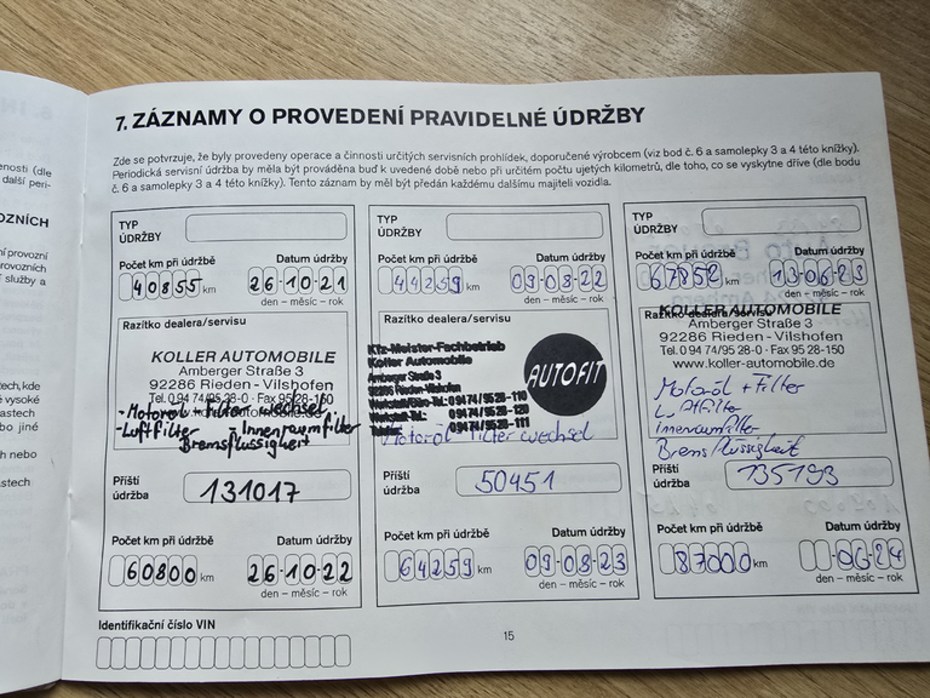 enosti (dle
další peri-
OZNÍCH
ní provozní
rovozních
í služby a
tech, kde
vysoké
astech
bo jiné
h nebo
astech
7. ZÁZNAMY O PROVEDENÍ PRAVIDELNÉ ÚDRŽBY
Zde se potvrzuje, že byly provedeny operace a činnosti určitých servisních prohlídek, doporučené výrobcem (viz bod č. 6 a samolepky 3 a 4 této knížky).
Periodická servisní údržba by měla být prováděna buď k uvedené době nebo při určitém počtu ujetých kilometrů, dle toho, co se vyskytne dříve (dle bodu
č. 6 a samolepky 3 a 4 této knížky). Tento záznam by měl být předán každému dalšímu majiteli vozidla.
TYP
ÚDRŽBY
Počet km při údržbě Datum údržby
40855 km 26-10-21
den – měsíc – rok
Razítko dealera/servisu
KOLLER AUTOMOBILE
Amberger Straße 3
92286 Rieden - Vilshofen
Tel. 0 94 74/95 28-0 · Fax 95 28-150
- Motoröl + Filter wechsel
- Luftfilter - Innenraumfilter
Bremsflüssigkeit
Příští
údržba
131017
Počet km při údržbě Datum údržby
60800 km 26-10-22
den – měsíc – rok
TYP
ÚDRŽBY
Počet km při údržbě Datum údržby
44259 km 09-08-22
den – měsíc – rok
Razítko dealera/servisu
Kfz-Meister-Fachbetrieb
Koller Automobile
Amberger Straße 3
92286 Rieden-Vilshofen
Werkstatt/Büro-Tel.: 0 94 74 / 95 28 - 110
Werkstatt-Tel.: 0 94 74 / 95 28 - 120
Telefax: 0 94 74 / 95 28 - 111
AUTOFIT
Motoröl Filter wechsel
Příští
údržba
50451
Počet km při údržbě Datum údržby
64259 km 09-08-23
den – měsíc – rok
TYP
ÚDRŽBY
Počet km při údržbě Datum údržby
67852 km 13-06-23
den – měsíc – rok
Razítko dealera/servisu
KOLLER AUTOMOBILE
Amberger Straße 3
92286 Rieden - Vilshofen
Tel. 0 94 74/95 28-0 · Fax 95 28-150
www.koller-automobile.de
Motoröl + Filter
Luftfilter
innenraumfilter
Bremsflüssigkeit
Příští
údržba
135193
Počet km při údržbě Datum údržby
87000 km -06-24
den – měsíc – rok
Identifikační číslo VIN
15